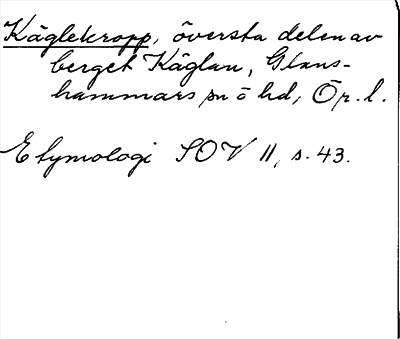 Käglekropp, översta delen av
berget Käglan, Glans-
hammars sn o hd, Ör. l.
Etymologi SOV 11, s. 43.